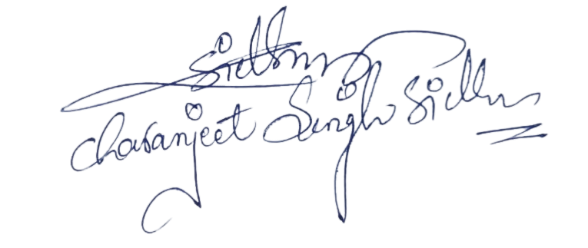 Sidhu
Charanjeet Singh Sidhu